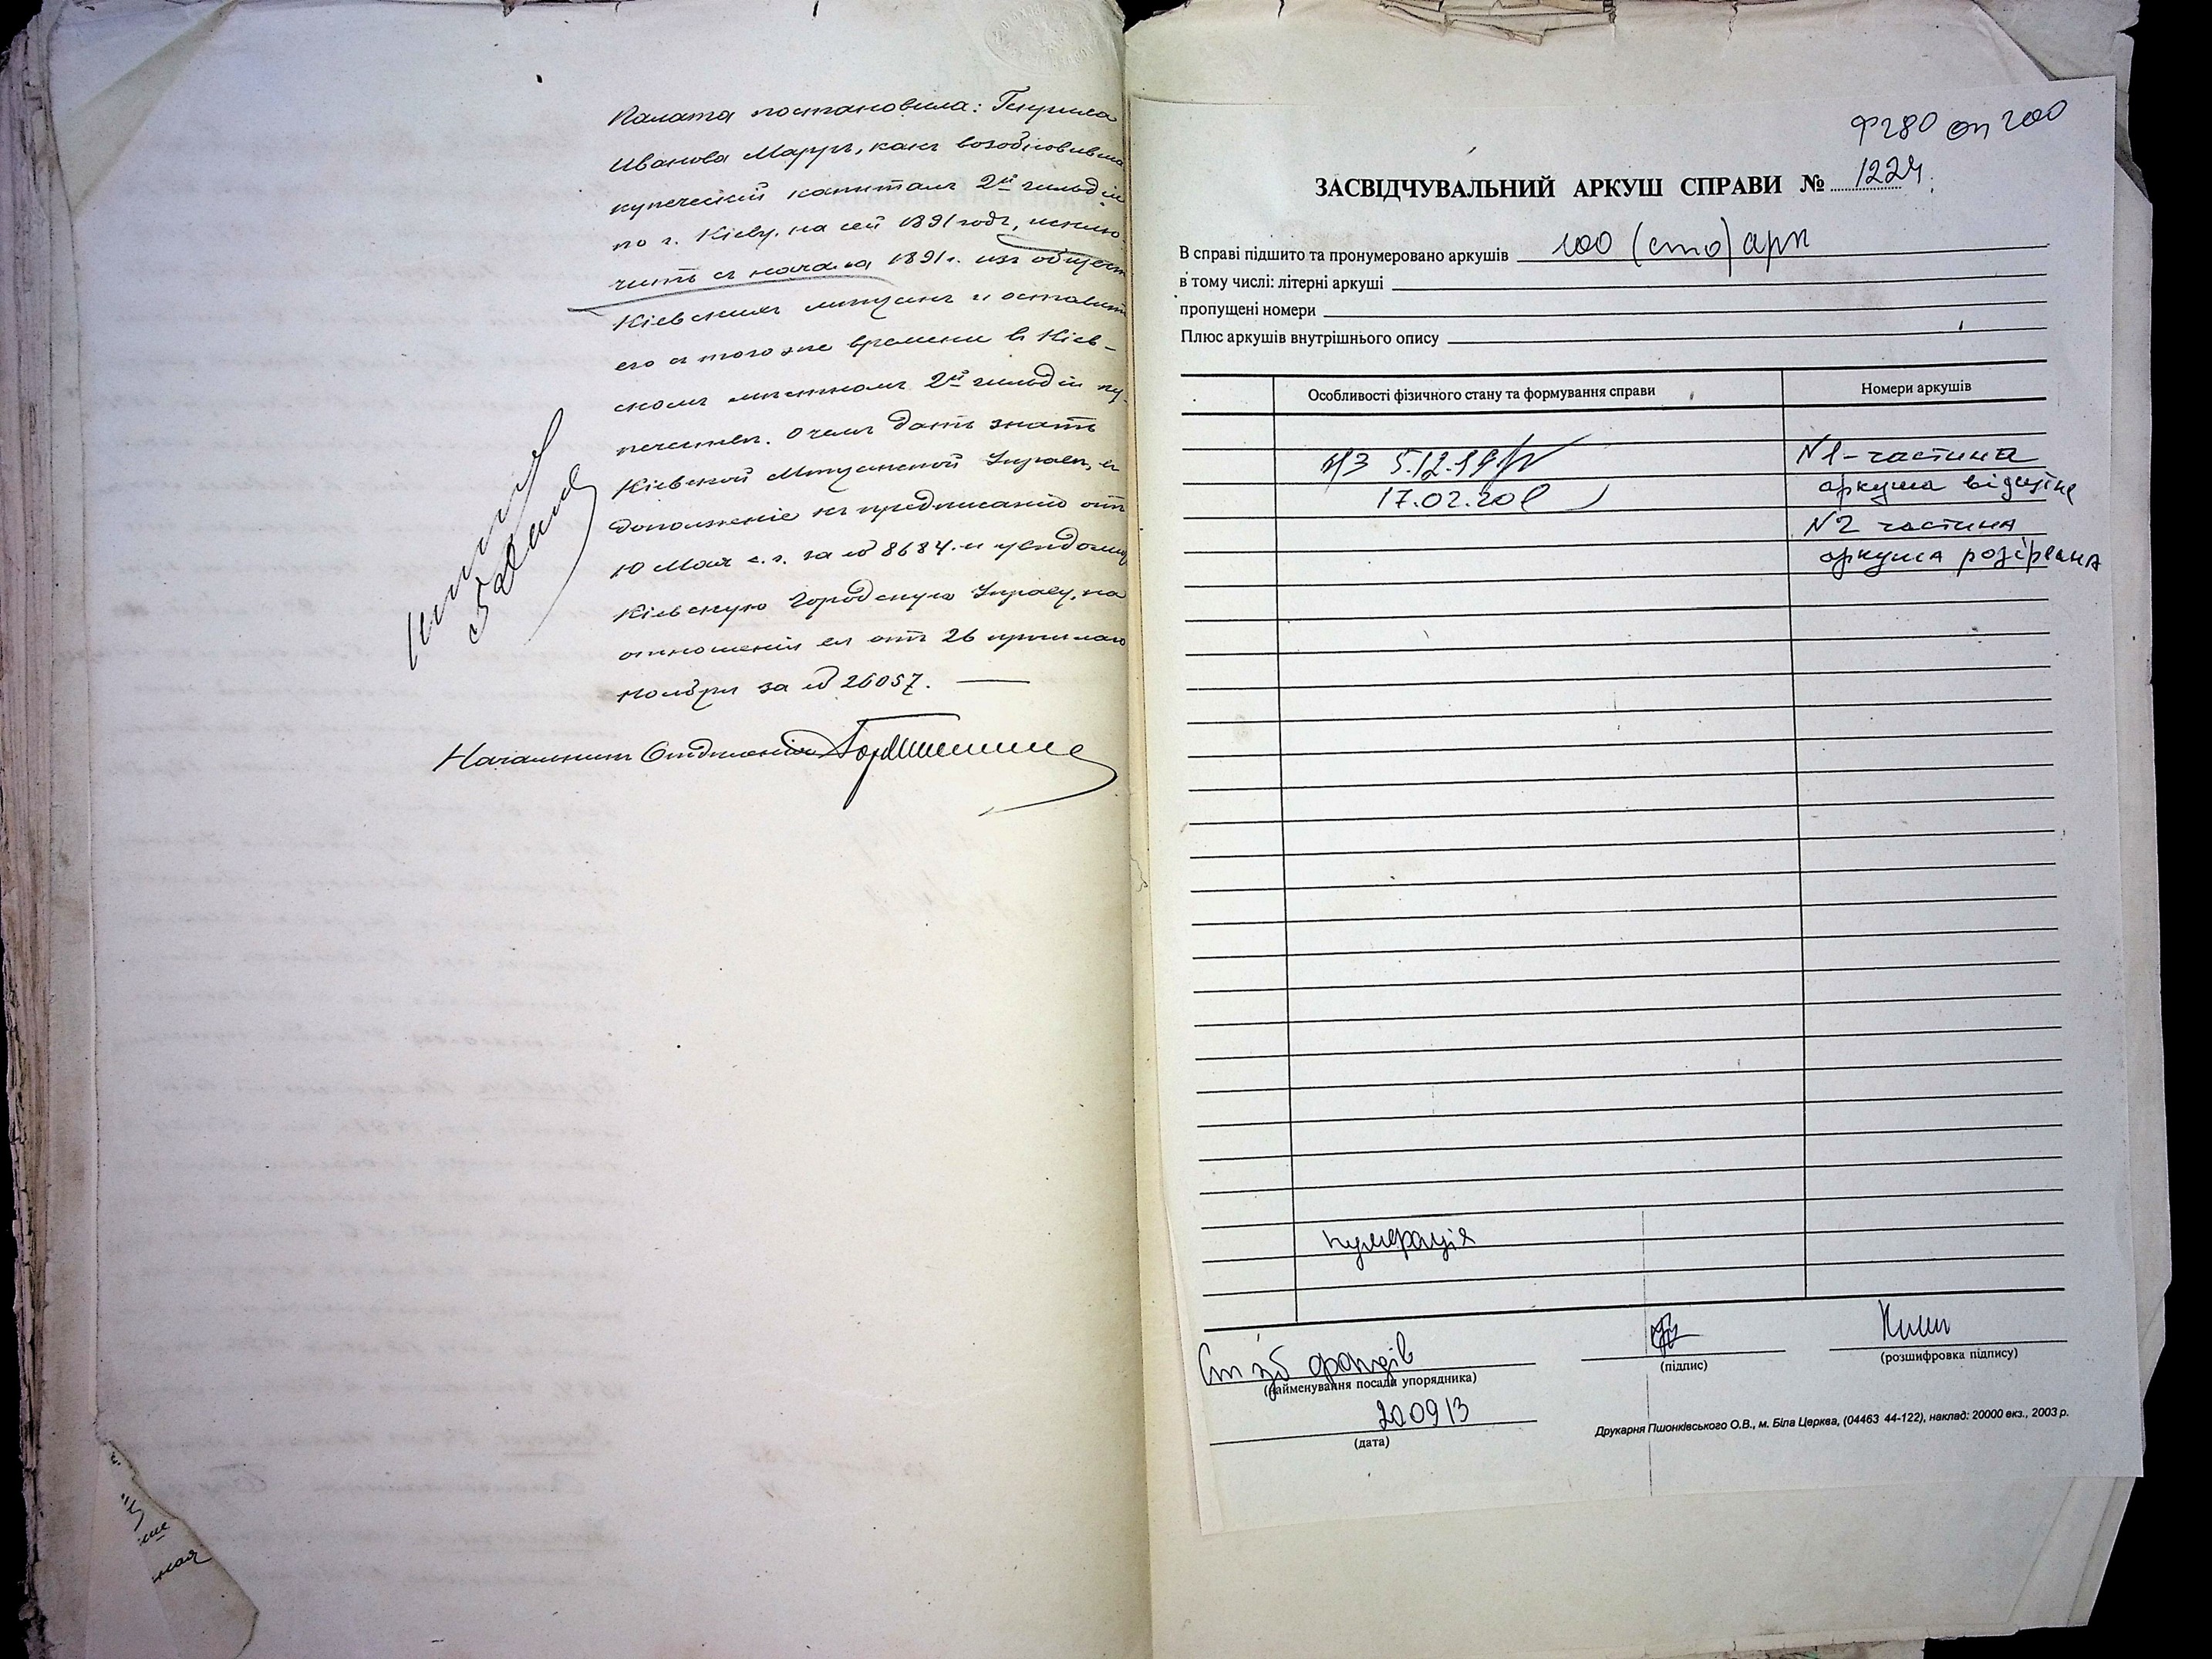 Палата постановила: Гаврила
Иванова Марръ, какъ возобновивша
купеческій капиталъ 2й гильдіи
по г. Кіеву, на сей 1891 годъ, исклю-
чить съ начала 1891 г. изъ общест
Кіевскихъ мѣщанъ и оставить
его съ того же времени въ Кіев-
скомъ мѣстномъ 2й гильдіи ку-
печествѣ. О чемъ дать знать
Кіевской Мѣщанской Управѣ, въ
дополненіе къ предписанію отъ
10 Мая с. г. за № 8684 и увѣдомить
Кіевскую Городскую Управу, на
отношеніе ея отъ 26 прошлаго
ноября за № 26057.
Начальникъ Отдѣленія
Ф 280 оп 200
ЗАСВІДЧУВАЛЬНИЙ АРКУШ СПРАВИ № 1224
В справі підшито та пронумеровано аркушів 100 (сто) арк
в тому числі: літерні аркуші
пропущені номери
Плюс аркушів внутрішнього опису
Особливості фізичного стану та формування справи
Номери аркушів
5.12.19
17.02.20
N1 - частина
аркуша відсутня
N2 частина
аркуша розірвана
нумерація
Ст зб фондів
(найменування посади упорядника)
(підпис)
(розшифровка підпису)
200913
(дата)
Друкарня Пшонківського О.В., м. Біла Церква, (04463 44-122), наклад: 20000 екз., 2003 р.